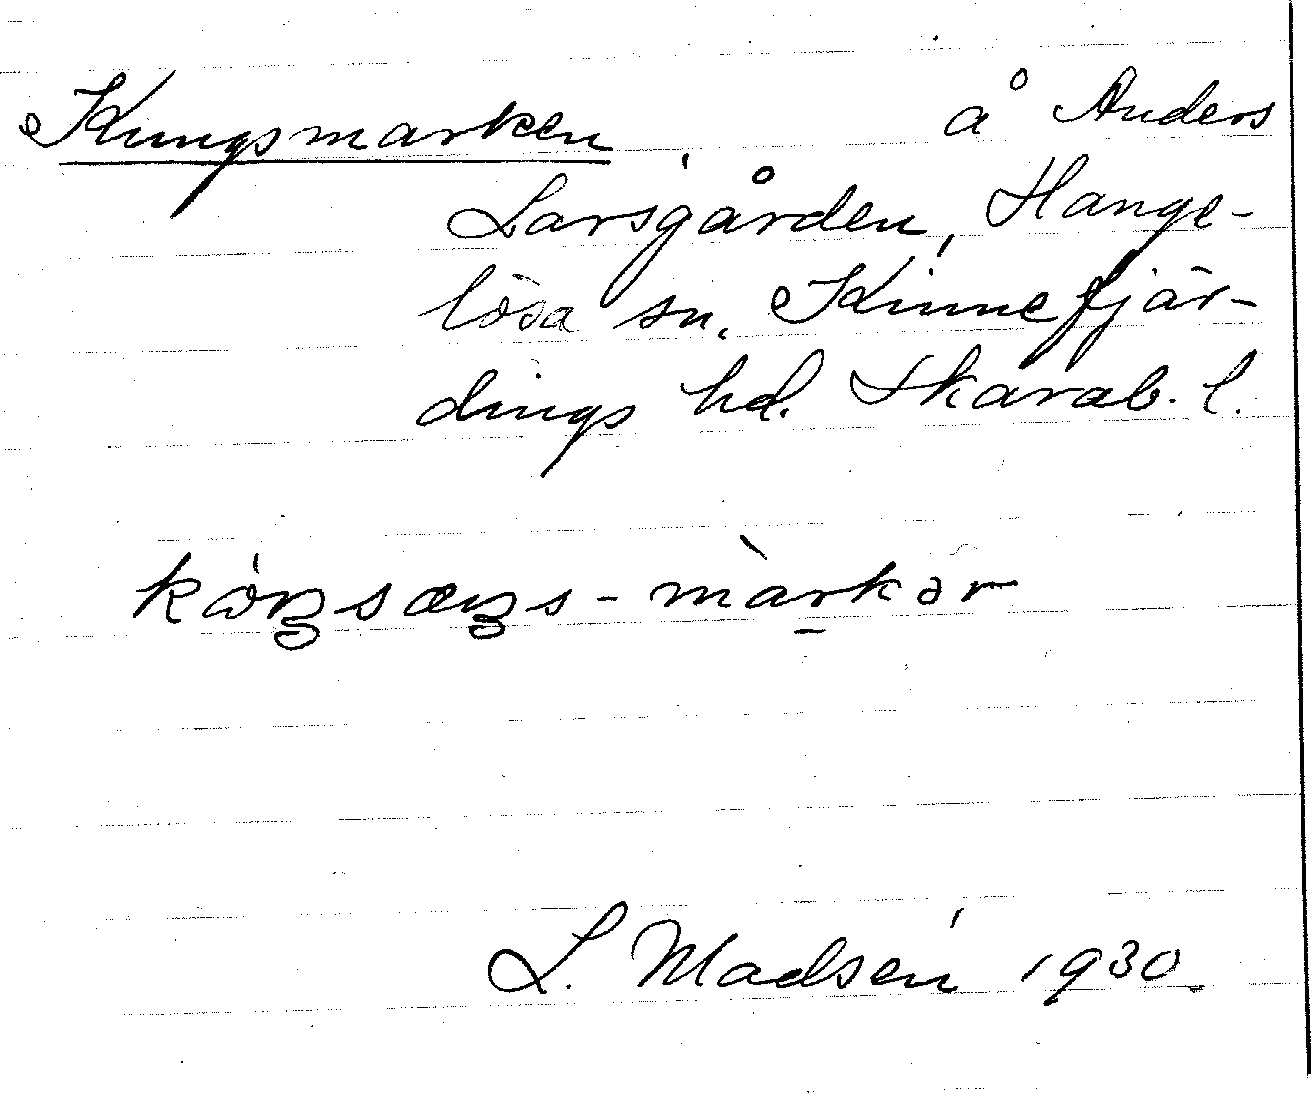 Kungsmarken å Anders
Larsgården, Hange-
lösa sn. Kinnefjär-
dings hd. Skarab. l.
L. Madsén 1930